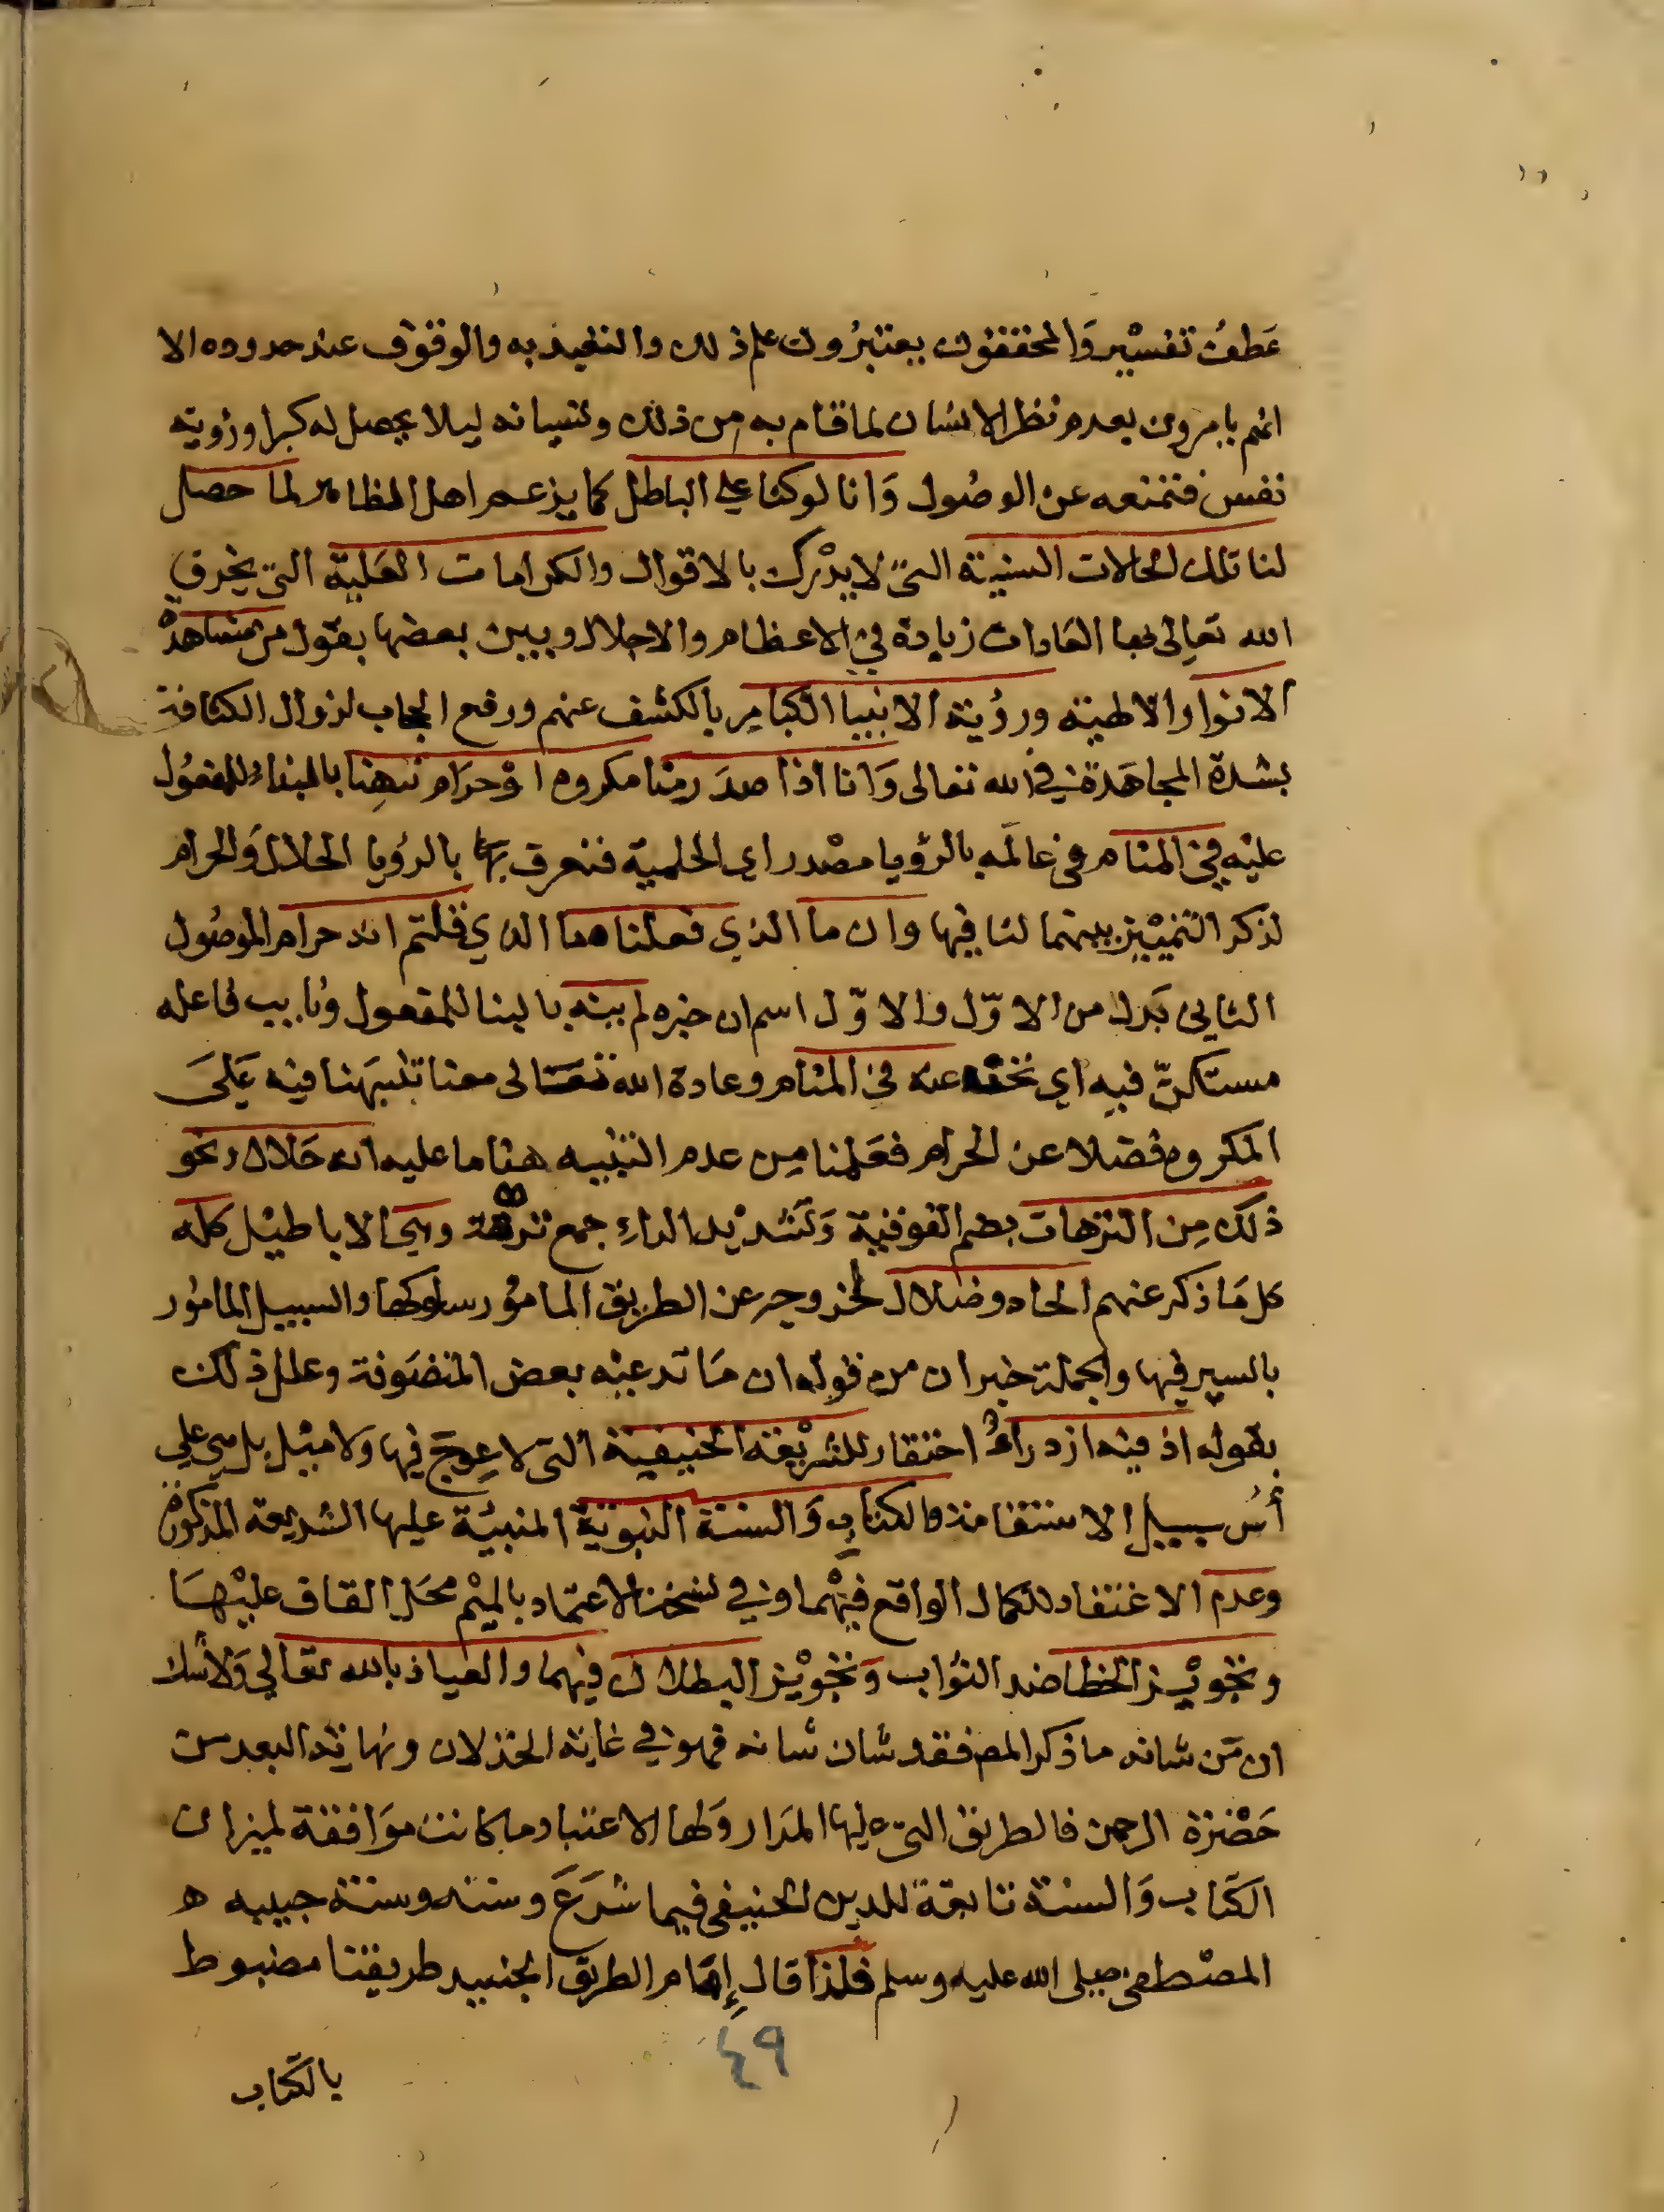 عَطفُ تفسْير وَالمحققون يعتبرُون علم ذلك والتقيد به والوقوف عند حدوده الا
انهم يامرون بعدم نظر الانسان لما قام به من ذلك ونسيانه ليلا يحصل له كبرا ورؤية
نفس فتمنعه عن الوصُول وَانا لو كنا علي الباطل كما يزعم اهل الظاهر لما حصل
لنا تلك الحالات السنيّة التيّ لا يدْرك بالاقوال والكرامات العَليّة التيّ يخرق
الله تعالى بها العَادات زيادة في الاعظام والاجلال وبين بعضها بقول من مشاهدْة
الانوار الالهيّة ورؤية الانبيا الكبار بالكشف عنهم ورفع الحجاب لزوال الكثافة
بشدة المجاهَدة في الله تعالى وَانا اذا صدَر منا مكروه اوْ حرَام نبهنا بالبناء للمفعُول
عليْه في المنام في عالمَه بالرؤيا مصْدر راي الحلمية فنعرف بها بالرؤيا الحلال وَالحرام
لذكر التمْييْز بينهما لنا فيها وان ما الذي فعلنا مما الذي قلتم انه حرام الموصُول
الثاني بَدل من الاوّل والاوّل اسم ان خبره لم ينبه بالبنا للمفعول ونايب فاعله
مستكنّ فيه اي عنه في المنام وعادة الله تعَالى معنا تنبيهَنا فيه عَلىَ
المكروه فضلا عن الحرام فعَلمنا من عدم التنبيه هنا ما عليه انه حَلال ونحو
ذلك مِن الترهات بضم الفوقية وَتَشديْد الراءِ جمع ترهة وهي الاباطيْل كله
كل مَا ذكر عنهم الحاد وضلال لخروجه عن الطريق المامُور سلوكها والسبيل المامُور
بالسير فيها والجملة خبر ان من قوله ان مَا تدعيْه بعض المتصَوفة وعلل ذلك
بقوله اذ فيْه ازدراءٌ احتقار للشريْعة الحنيفيّة التي لا عِوج فيها وَلا ميْل بل هي علي
أُس سبيل الاستقامة والكتاب وَالسنة النبويّة المنبيّة عليها الشريعة المذكورة
وعدم الاعتقاد للكمال الواقع فيْهما وفي نسخة الاعتماد بالميْم محَل القاف عليْهمَا
وتجويْز الخطا ضد الثوَاب وَتجويْز البطلان فيهما والعياذ بالله تعَالي وَلا شك
ان مَن شانه ما ذكر المصر فقد شان شانه فهو في غاية الخذلان ونهاية البعد من
حَضْرَة الرحمن فالطريق التيّ عليها المدَار وَلها الاعتبار ما كانت موَافقة لميزان
الكتاب وَالسنة تابعَة للدين الحنيفي فيما شرَعَ وسنه وسنة حبيبه ه
المصْطفى صلى الله عليه وسلم فلذا قال إمَام الطريق الجنيد طريقتنا مضبوط
٤٩
بالكتاب